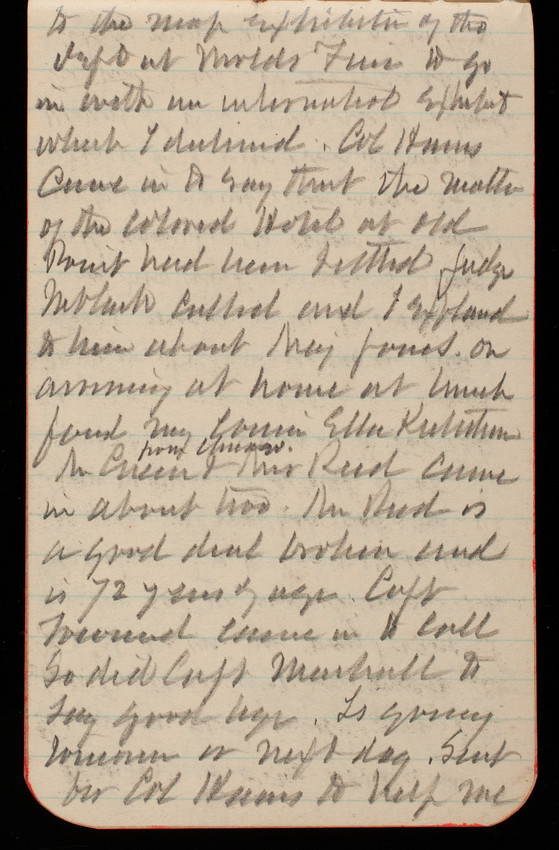 to the map exhibition of the
Dept at Worlds Fair to go
in with an international Exhibit
which I declined. Col Hains
came in to say that the matter
of the Colored Hotel at Old
Point had been settled Judge
called and I explained
to him about Maj Jones. On
arriving at home at lunch
found my Cousin Ella
from Chicago.
Mr & Mrs Reed came
in about two. Mr Reed is
a good deal broken and
is 72 years of age. Capt
Townsend came in to call
So did Capt Marshall to
say good bye. Is going
tomorrow or next day. Sent
for Col Hains to help me